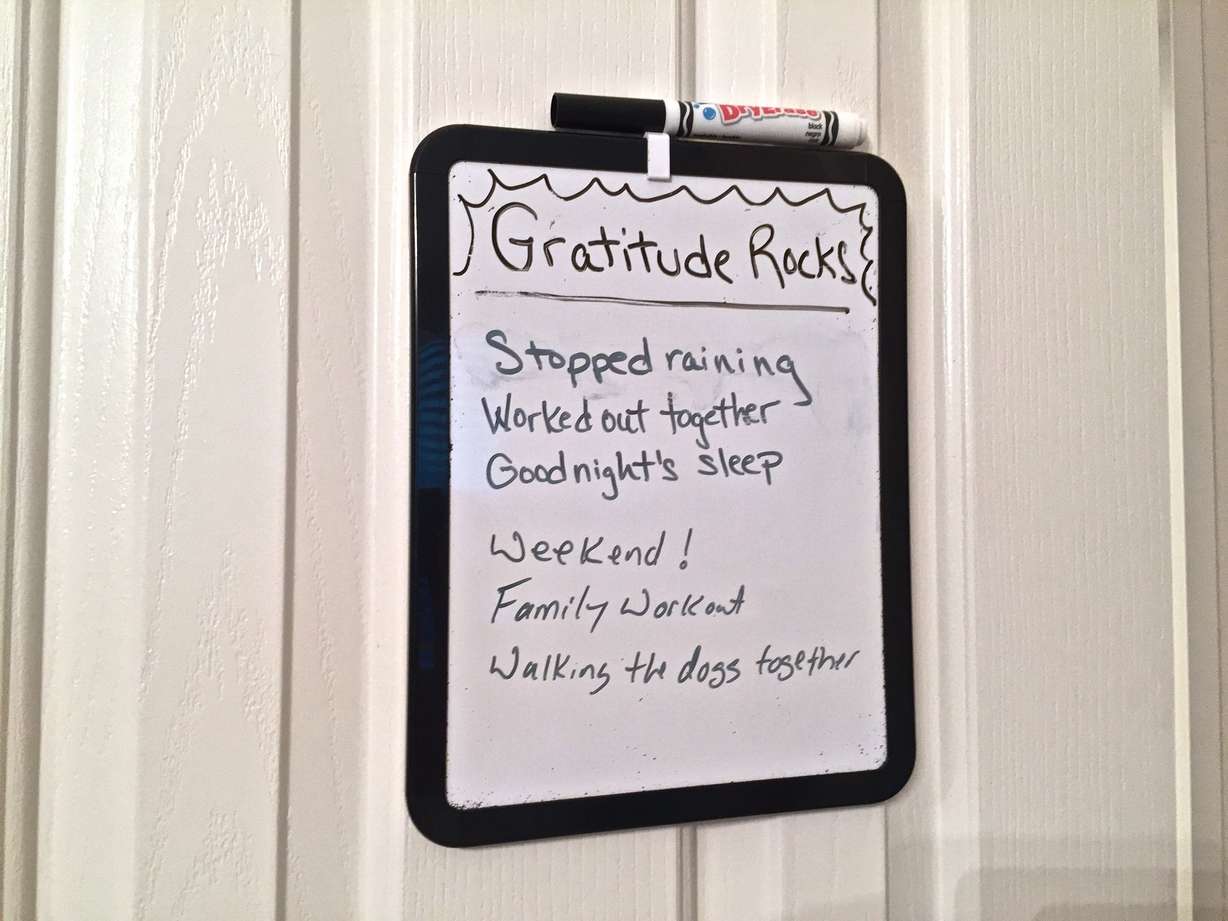 DryErase
black
negro
Gratitude Rocks
Stopped raining
Worked out together
Good night's sleep
Weekend!
Family Workout
Walking the dogs together